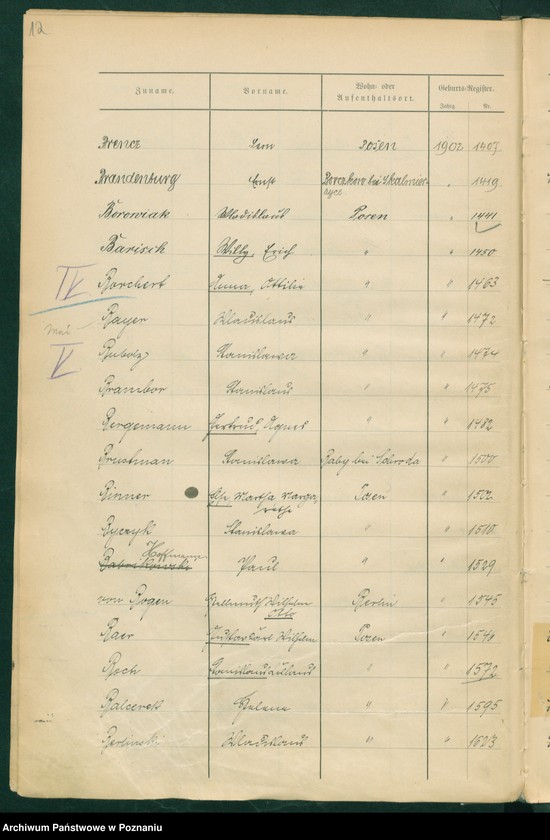 12
Zuname. Vorname. Wohn- oder Aufenthaltsort. Geburts-Register.
Jahrg. Nr.
Brencz Leon Posen 1902 1407
Brandenburg Ernst Borczkow bei Skalmier- " 1419
zyce
Borowiak Wladislaus Posen " 1441
Barisch Willy, Erich " " 1450
IV Borchert Anna, Ottilie " " 1463
Mai Bayer Wladislaus " " 1472
V Bubolz Stanislawa " " 1474
Brambor Stanislaus " 1475
Bergemann Gertrud, Agnes " " 1482
Brustman Stanislawa Baby bei Schroda " 1500
Binner Martha Marga- Posen " 1502
rethe
Byczyk Stanislawa " " 1510
Hoffmann
Paul " " 1529
von Bogen Hellmuth Wilhelm Berlin " 1545
Otto
Baer Gustav Carl Wilhelm Posen " 1546
Boch " " 1572
Balcerek Helene " " 1595
Berlinski Wladislaus " " 1623
Archiwum Państwowe w Poznaniu